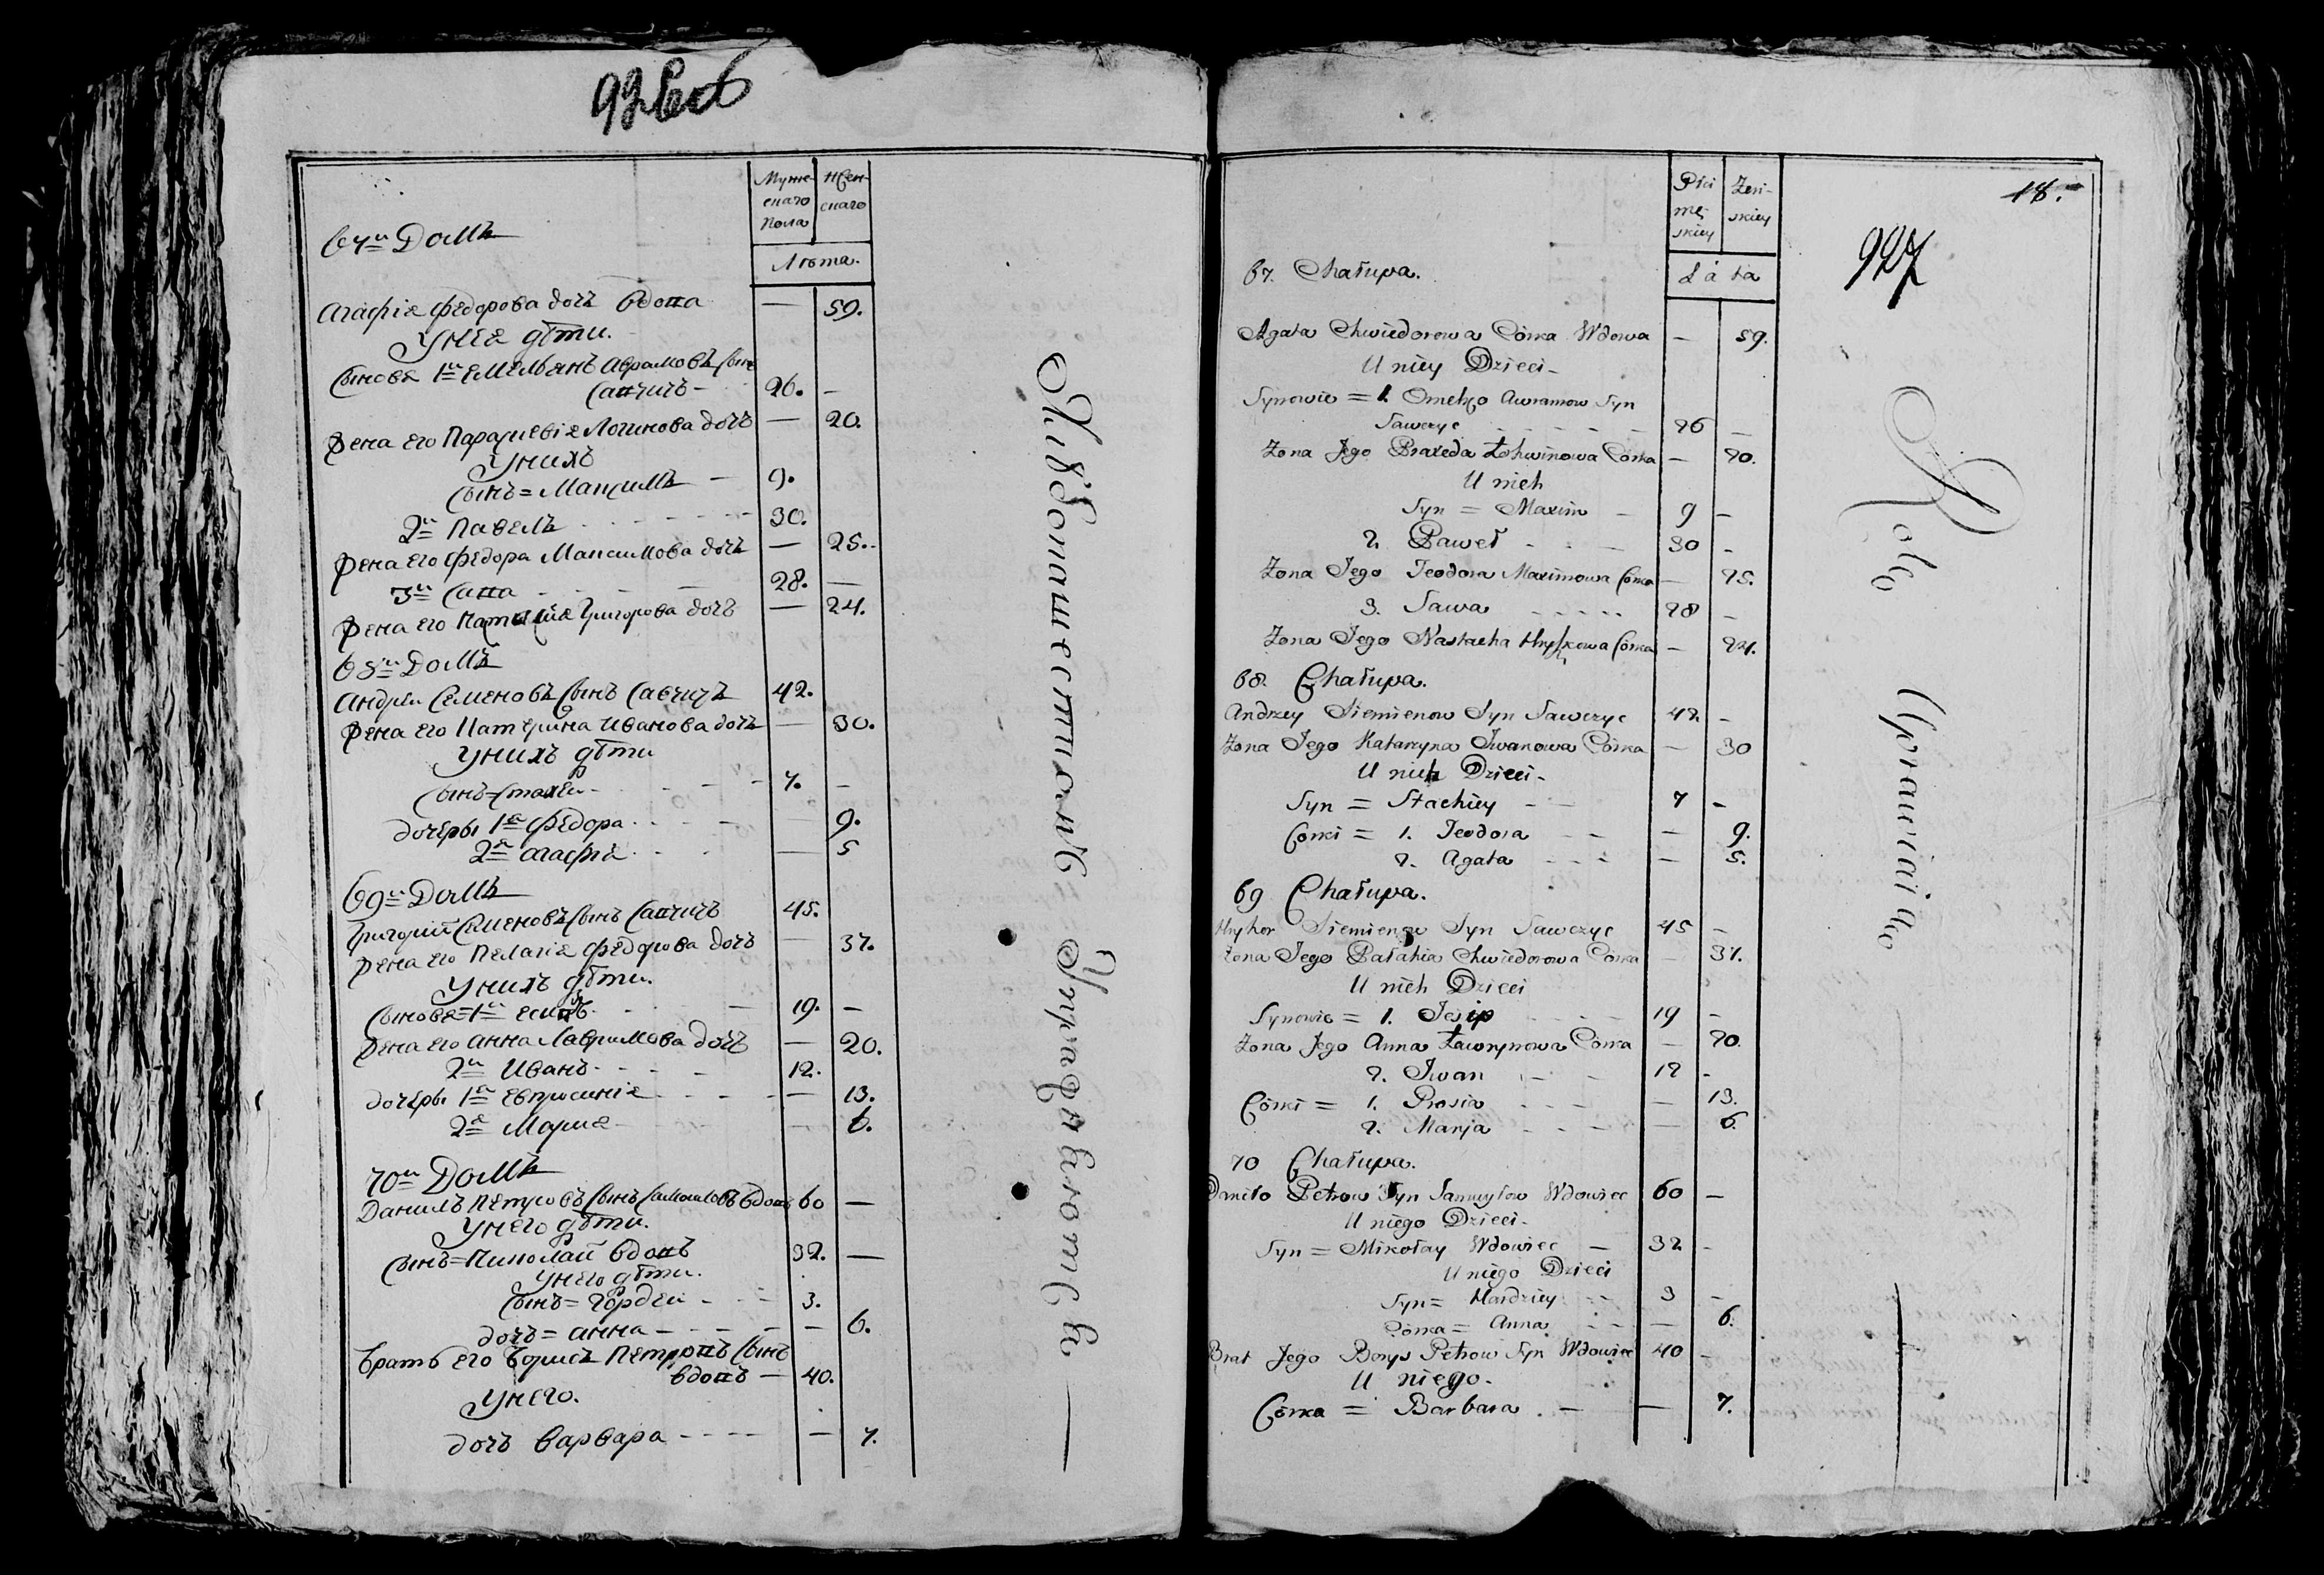 926 об
Муже-
скаго
пола
Жен-
скаго
Лѣта.
67й Домъ
Агафіа Федорова дочь вдова — 59.
У неё дѣти.
Сыновя 1й Емельянъ Аврамовъ сынъ
Савчичъ — 26. —
Жена его Параскевіа Логинова дочь — 20.
У нихъ
сынъ = Максимъ — 9.
2й Павелъ 30.
Жена его Федора Максимова дочь — 25.
3й Сава 28. —
Жена его Григорова дочь — 24.
68й Домъ
Андреи Семеновъ сынъ Савчичъ 42.
Жена его Катерина Иванова дочь — 30.
У нихъ дѣти
Сынъ = Стахеи 7. —
дочеры 1я Федора — 9.
2я Агафіа — 5
69й Домъ
Григорий Семеновъ сынъ Савчичъ 45.
Жена его Пелагіа Федорова дочь — 37.
У нихъ дѣти.
Сыновя = 1й 19. —
Жена его Анна Лавримова дочь — 20.
2й Иванъ 12.
дочеры 1я Евпросиніа — 13.
2я Мариа — 6.
70й Домъ
Данилъ Петровъ сынъ Самоиловъ вдовъ 60 —
У него дѣти.
Сынъ = Николай вдовъ 32. —
У него дѣти.
Сынъ = Гордеи 3.
дочь = Анна — 6.
Братъ его Борисъ Петровъ сынъ
вдовъ — 40.
У него.
дочь Варвара — 7.
Хлѣбопашествомъ Упражняются
18.
927
Płci
mę-
skiey
Żeń-
skiey
Lata
67. Chałupa.
Agata Chwiedorowa Córka Wdowa — 59.
U niey Dzieci
Synowie = 1. Omelko Awramow Syn
Sawczyc 26 —
Żona Jego Praxeda Łohwinowa Córka — 20.
U nich
Syn = Maxim 9 —
2. Paweł 30 —
Żona Jego Teodora Maximowa Córka — 25.
3. Sawa 28 —
Żona Jego Nastacha Hryhorowa Córka — 24.
68. Chałupa.
Andrzey Siemienow Syn Sawczyc 42 —
Żona Jego Katarzyna Iwanowa Córka — 30
U nich Dzieci
Syn = Stachiey 7 —
Corki = 1. Teodora — 9.
2. Agata — 5.
69 Chałupa.
Hryhor Siemienow Syn Sawczyc 45 —
Żona Jego Pałahia Chwiedorowa Córka — 37.
U nich Dzieci
Synowie = 1. Josip 19 —
Żona Jego Anna Ławrynowa Córka — 20.
2. Iwan 12 —
Córki = 1. Prosia — 13.
2. Marja — 6.
70 Chałupa.
Daniło Petrow Syn Samuyłow Wdowiec 60 —
U niego Dzieci
Syn = Mikołay Wdowiec 32 —
U niego Dzieci
Syn = Hordziey 3 —
Córka = Anna — 6.
Brat Jego Borys Petrow Syn Wdowiec 40 —
U niego.
Córka = Barbara — 7.
Rolę Uprawiaią